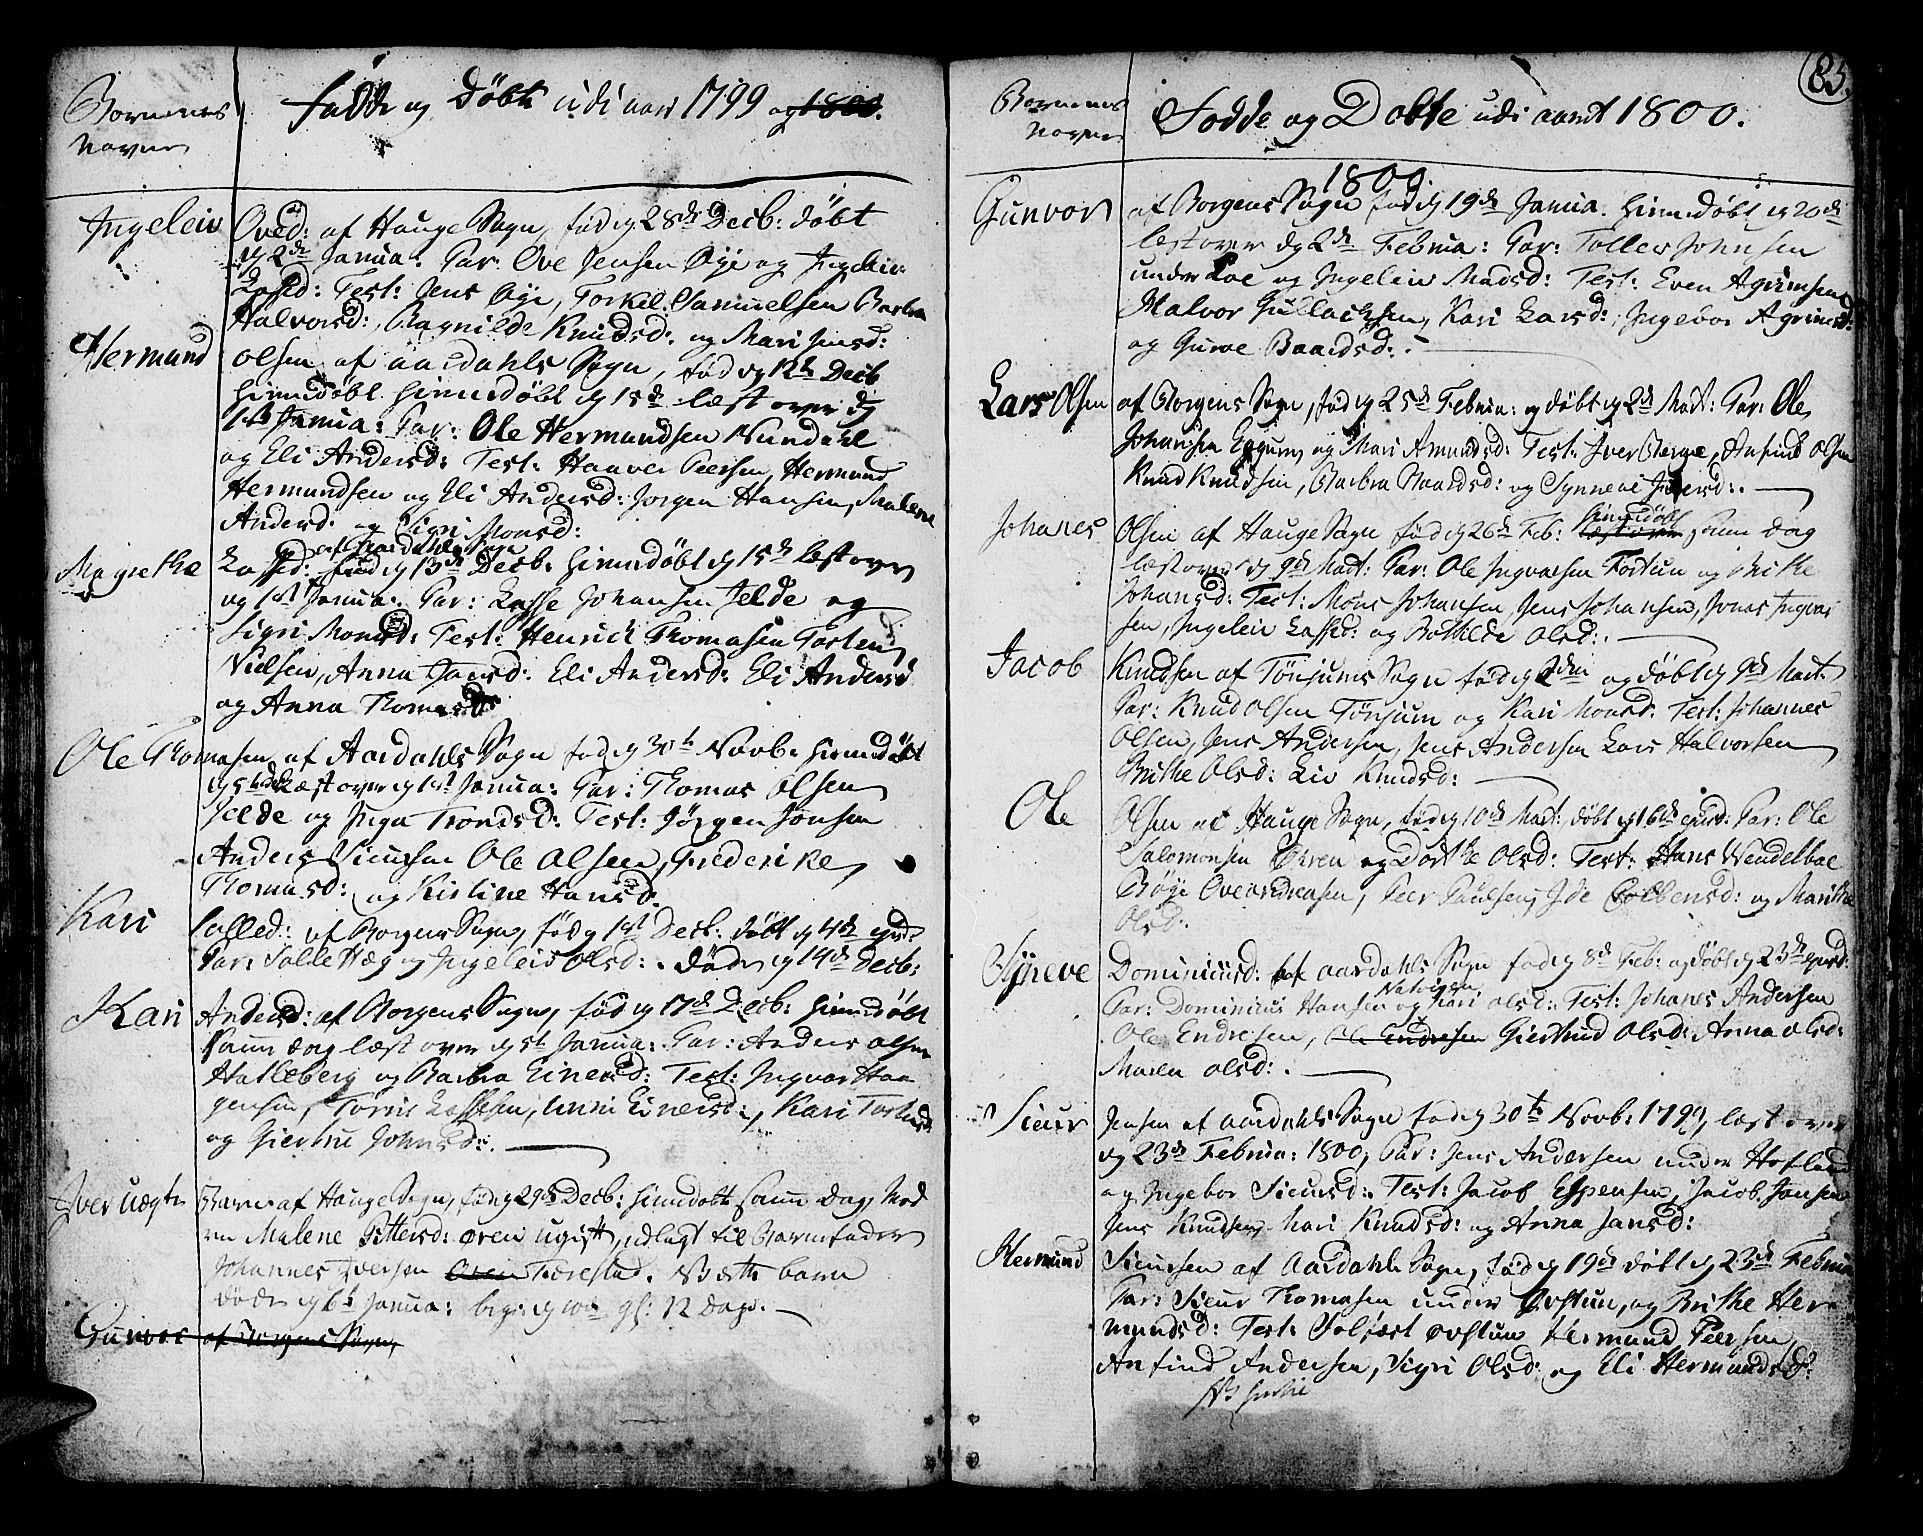 Børnenes
Navne
Fødde og Døbte udi aaret 1799 og 1800.
Ingeleiv
Oved: af Hauge Sogn, fød dg 28de Decb: døbt
dg 2de Janua: Par: Ove Jensen Øye og Ingeleiv
Lassed: Test: Jens Øye, Torkel Samuelsen Barbra
Halvorsd: Ragnilde Knudsd: og Mari Jensd:
Hermund
Olsen af Aardahls Sogn, fød dg 12te Decb
hiemdøbt hiemdøbt dg 15de læst over dg
1ste Janua: Par: Ole Hermundsen Nundahl
og Eli Andersd: Test: Haaver Peersen, Hermund
Hermundsen og Eli Andersd: Jørgen Hansen, Malene
Andersd: og Sigri Monsd:
af Aardahls Sogn
Magrethe
Lassed: fød dg 13de Decb: hiemdøbt dg 15de læst over
dg 1ste Janua: Par: Lasse Johansen Jelde og
Sigri Monsd: Test: Henrich Thomasen Torsten
Nielsen, Anna Jansd: Eli Andersd: Eli Andersd
og Anna Thomasd:
Ole Thomasen
af Aardahls Sogn fød dg 30te Novb: hiemdøbt
dg 5te Decb læst over dg 1ste Janua: Par: Thomas Olsen
Jelde og Inga Trondsd: Test: Jørgen Jonsen
Anders Siursen Ole Olsen, Frederike
Thomasd: og Kistine Hansd.
Kari
Salled: af Borgens Sogn, fød dg 1ste Decb: døbt dg 4de ejusd:
Par: Salle Hæg og Ingeleiv Olsd: døde dg 14de Decb:
Kari
Andersd: af Borgens Sogn, fød dg 17de Decb: hiemdøbt
samme dag læst over dg 1st Janua: Par: Anders Olsen
Hatleberg og Barbra Einersd: Test: Ingvar Haa
gensen, Tørris Lassesen, Unni Einersd:, Kari Torkelsd:
og Giertrue Johnsd:
Iver uægte
Barn af Hauge Sogn, fød dg 29de Decb: hiemdøbt samme Dag, Mod
ren Malene Pettersd: Øren ugift, udlagt til Barnefader
Johannes Iversen Øren Færestad. NB dette barn
døde dg 6te Janua: begr: dg 10de gl: 12 Dage.
Gunvor af Borgens Sogn,
85.
Børnenes
Navne
Fødde og Døbte udi aaret 1800.
1800.
Gunvor
af Borgens Sogn fød dg 19de Janua. hiemdøbt dg 20de
læst over dg 2de Februa: Par: Tolles Johnsen
under Loe og Ingeleiv Madsd: Test: Even Agrimsen
Halvor Gullachsen, Kari Larsd: Ingebor Agrimsd:
og Guroe Baardsd:
Lars Olsen
af Borgens Sogn, fød dg 25de Februa: og døbt dg 2de Mart: Par: Ole
Johansen Eggum, og Mari Amundsd: Test: Iver Berge, Anfind Olsen
Knud Knudsen, Barbra Baardsd: og Synneve Iversd:
Johanes
Olsen af Hauge Sogn fød dg 26de Feb: læst over hiemdøbt samme dag
læst over dg 9de Mart: Par: Ole Ingvarsen Fortun og Brithe
Johansd: Test: Mons Johansen, Jens Johansen, Jonas Ingvar
sen, Ingeleiv Lassed: og Bothilde Olsd:
Jacob
Knudsen af Tønjums Sogn fød dg 2den og døbt dg 9de Mart:
Par: Knud Olsen Tønjum og Kari Monsd: Test: Johannes
Olsen, Jens Andersen, Jens Andersen Lars Halvorsen
Brithe Olsd: Liv Knudsd:
Ole
Olsen af Hauge Sogn, fød dg 10de Mart: døbt dg 16de ejusd: Par: Ole
Salomonsen Øren og Dorthe Olsd: Test: Hans Wendelboe
Bøye Ove Andreasen, Peer Paulsen, Ide Colbensd: og Marithe
Olsd.
Syneve
Dominicusd: af Aardahls Sogn fød dg 8de Feb: og døbt dg 23de ejusd:
Par: Dominicus Hansen Natvigen og Kari Olsd: Test: Johanes Andersen
Ole Endresen, Ole Endresen Giertrud Olsd: Anna Olsd:
Maren Olsd:
Siur
Jensen af Aardahls Sogn fød dg 30te Novb: 1799, læst over
dg 23de Februa: 1800, Par: Jens Andersen under Hofland
og Ingebor Siursd: Test: Jacob Espensen, Jacob Jansen
Jens Knudsen, Mari Knudsd: og Anna Jansd:
Hermund
Siursen af Aardahls Sogn, fød dg 19de døbt dg 23de Februa
Par: Siur Thomasen under Øvstun, og Brithe Her
mundsd: Test: Solfæst Øvstun Hermund Peersen
Anfind Andersen, Sigri Olsd: og Eli Hermundsd: